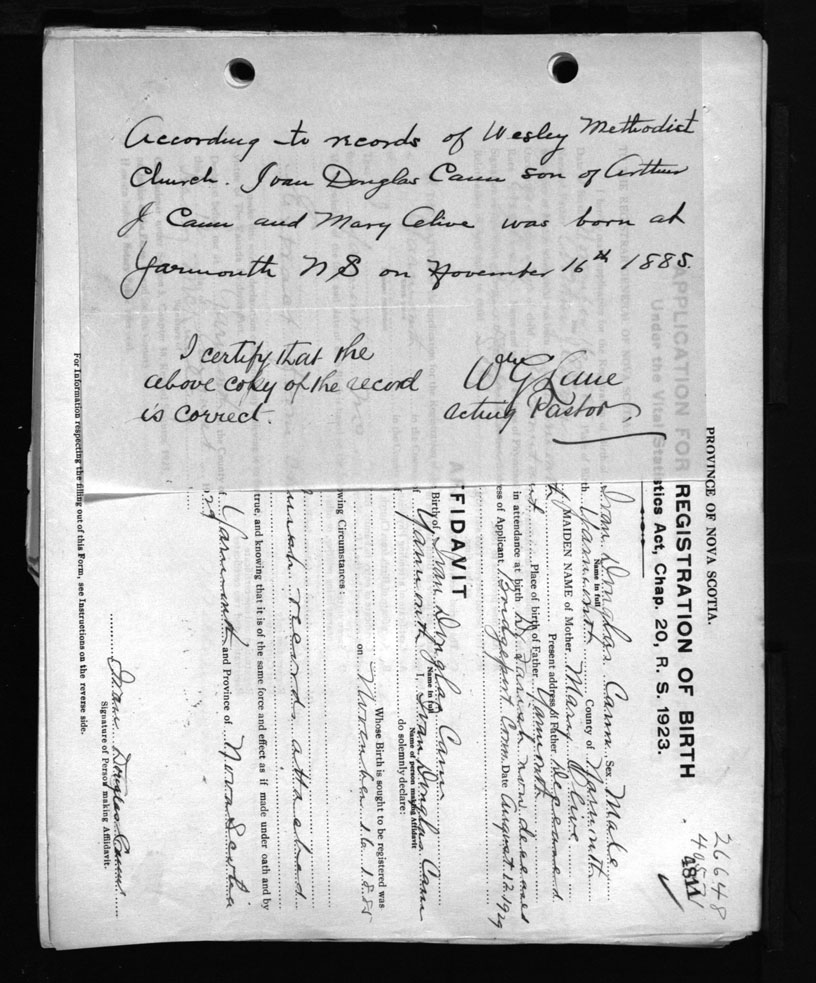 According to records of Wesley Methodist
Church. Ivan Douglas Cann son of Arthur
J Cann and Mary Olive was born at
Yarmouth N S on November 16th 1885.
I certify that the
above copy of the record
is correct.
Wm G Lane
acting Pastor
PROVINCE OF NOVA SCOTIA.
26648
4811
REGISTRATION OF BIRTH
tics Act, Chap. 20, R. S. 1923.
Ivan Douglas Cann Sex Male
Name in full
Yarmouth County of Yarmouth
MAIDEN NAME of Mother Mary Olive
Present address of Father Deceased
Place of birth of Father Yarmouth
in attendance at birth Dr Farish now deceased
ess of Applicant Bridgeport Conn. Date August 12 1929
FFIDAVIT
Birth of Ivan Douglas Cann
Name in full
Yarmouth I, Ivan Douglas Cann
Name of person making Affidavit
do solemnly declare:
Whose Birth is sought to be registered was
on November 16 1885
wing Circumstances:
records attached
true, and knowing that it is of the same force and effect as if made under oath and by
Yarmouth and Province of Nova Scotia
Ivan Douglas Cann
Signature of Person making Affidavit.
For Information respecting the filling out of this Form, see Instructions on the reverse side.